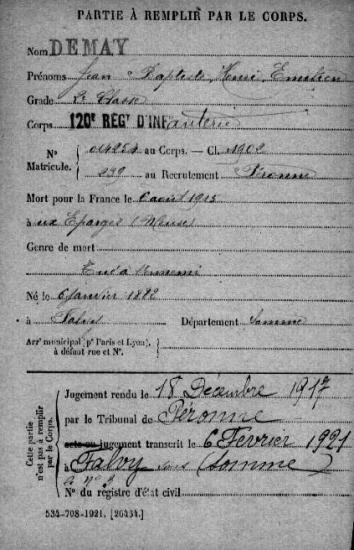 PARTIE À REMPLIR PAR LE CORPS.
Nom DEMAY
Prénoms Jean Baptiste Henri Emilien
Grade 2e Classe
Corps 120e REGt D'INFanterie
N° 04254 au Corps. — Cl. 1902
Matricule. 239 au Recrutement Péronne
Mort pour la France le 6 août 1915
à aux Eparges (Meuse)
Genre de mort
Tué à l'ennemi
Né le 6 Janvier 1882
à Falvy Département Somme
Arrt municipal (pr Paris et Lyon),
à défaut rue et N°.
Cette partie
n'est pas à remplir
par le Corps.
Jugement rendu le 18 Décembre 1917
par le Tribunal de Péronne
acte ou jugement transcrit le 6 Février 1921
à Falvy (Somme)
N° du registre d'état civil
534-708-1921. [26434.]